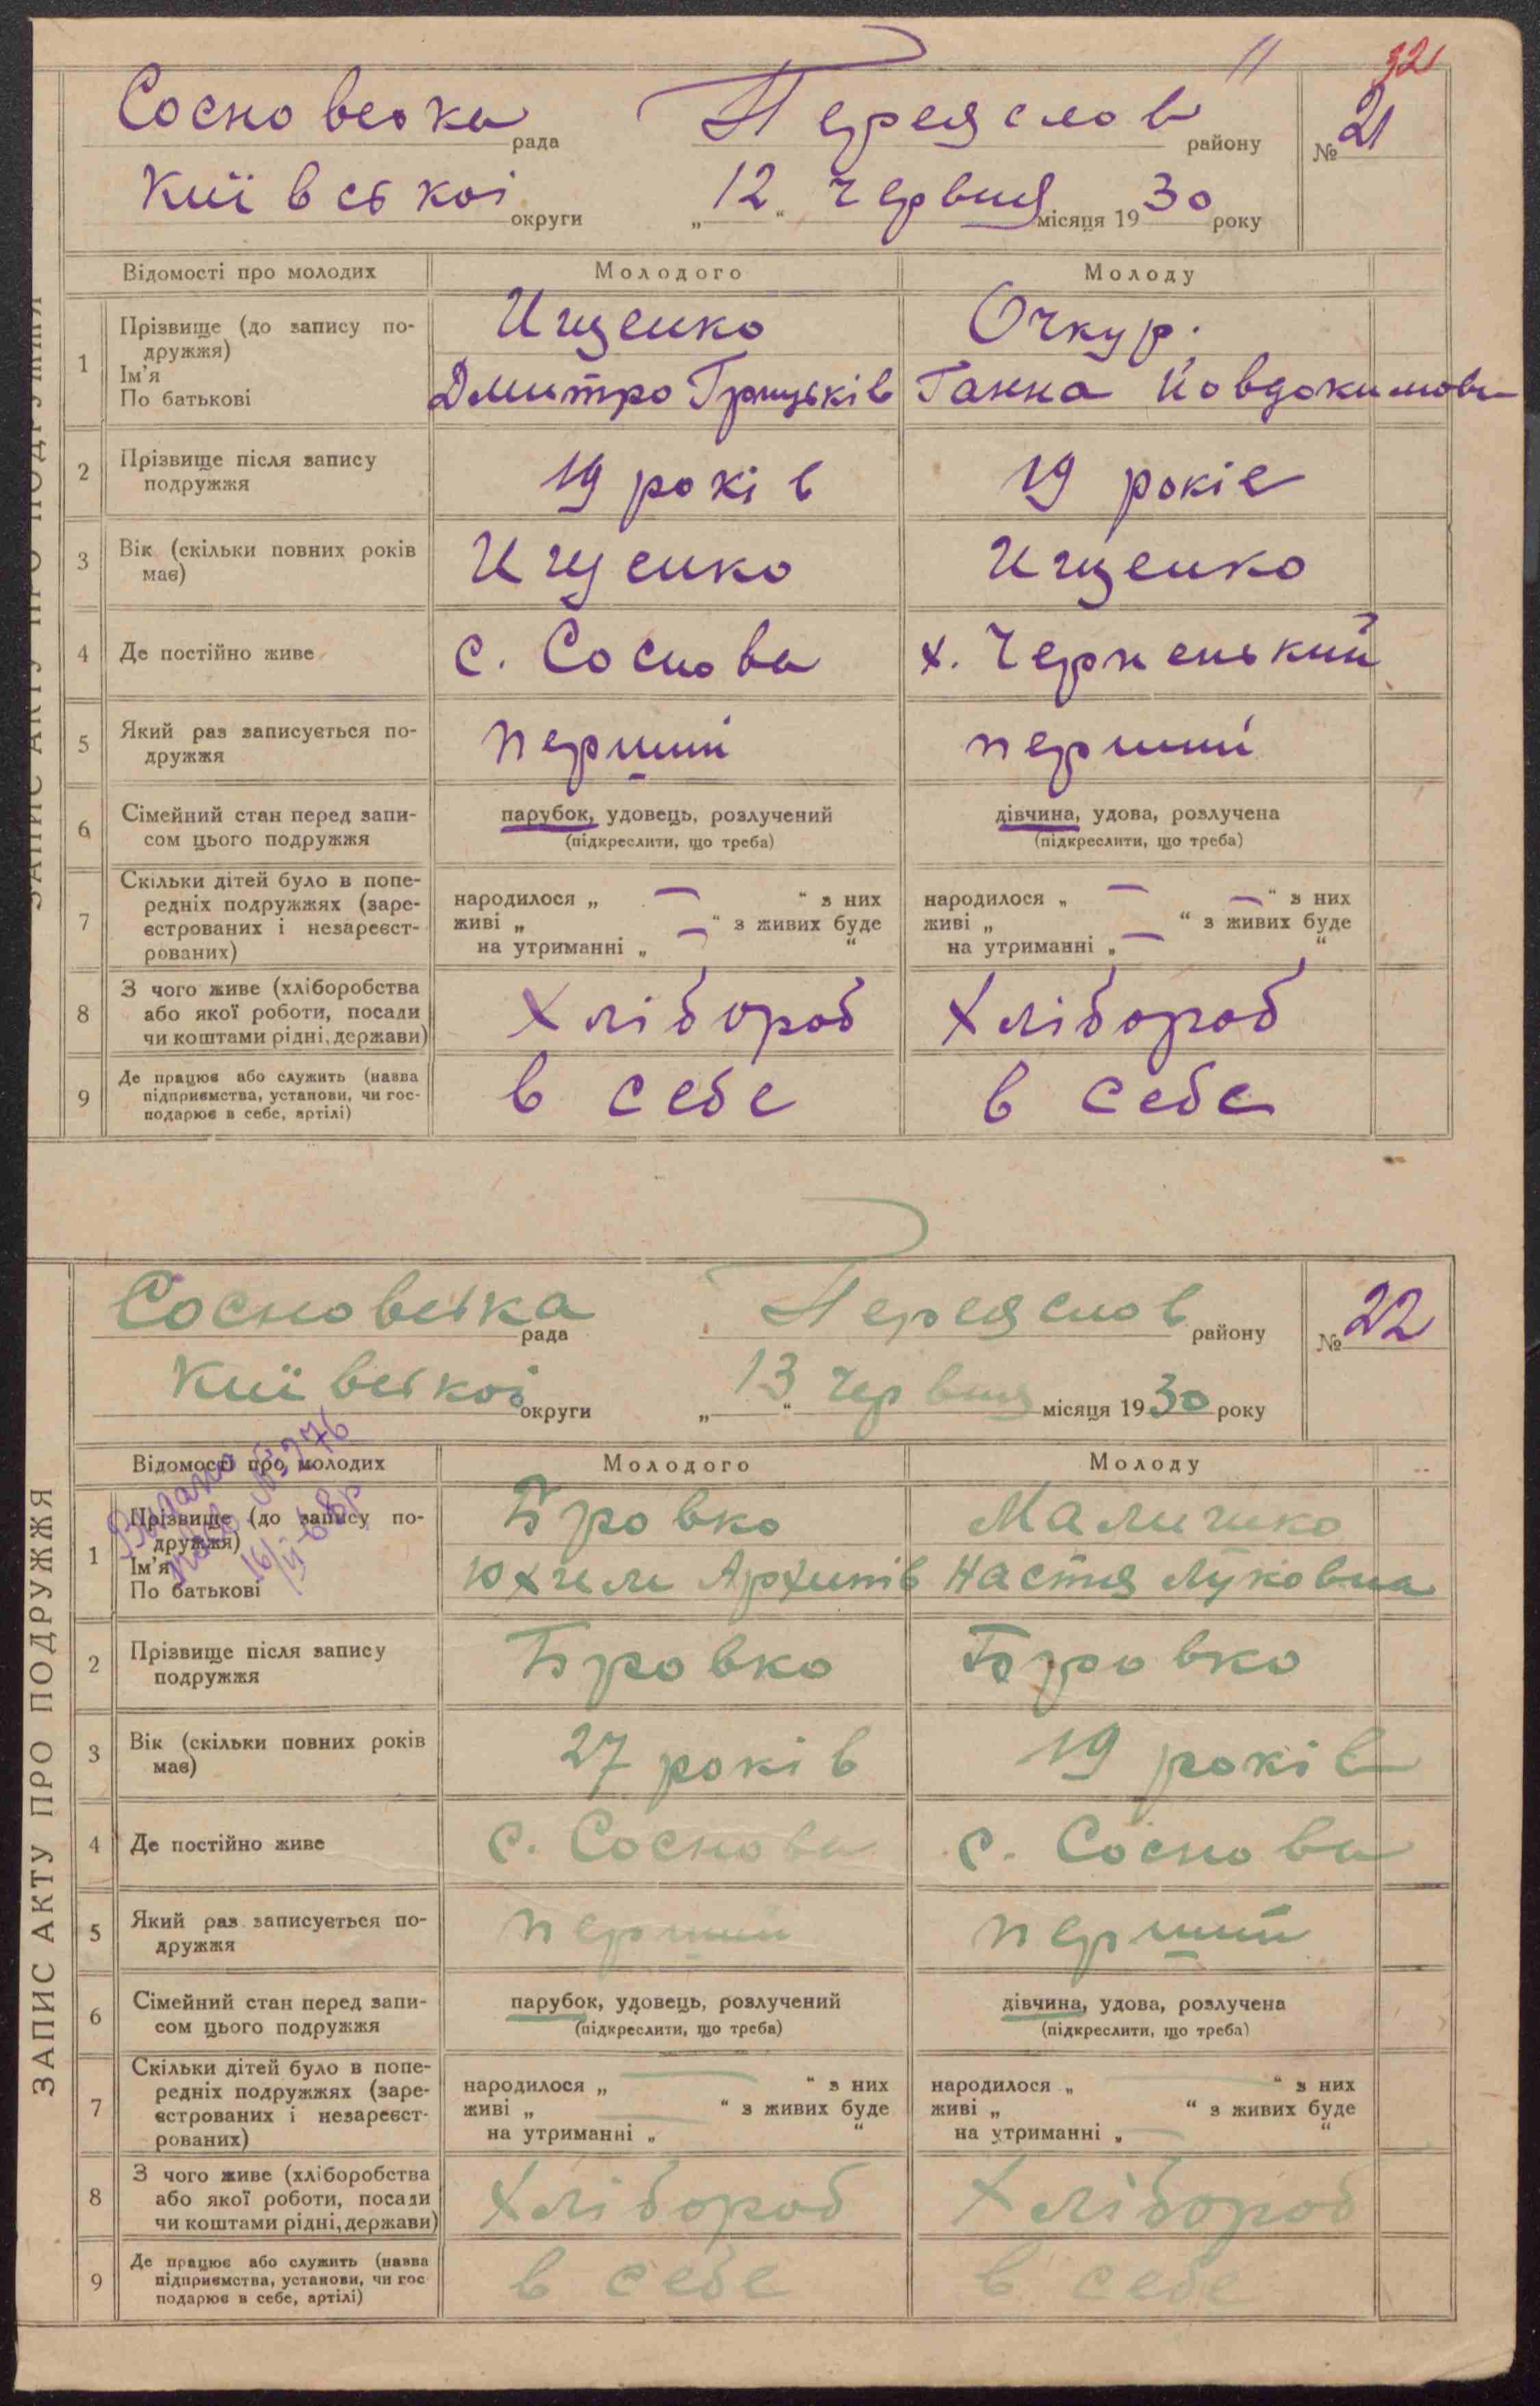 11 32
Сосновська рада Переяслов району № 21
Київської округи „12“ червня місяця 1930 року
ЗАПИС АКТУ ПРО ПОДРУЖЖЯ
Відомості про молодих Молодого Молоду
1 Прізвище (до запису по-
дружжя) Ищенко Очкур.
Ім'я
По батькові Дмитро Грицьків Ганна Йовдокимовн
2 Прізвище після запису
подружжя 19 років 19 років
3 Вік (скільки повних років
має) Ищенко Ищенко
4 Де постійно живе с. Соснова х. Черненький
5 Який раз записується по-
дружжя перший перший
6 Сімейний стан перед запи-
сом цього подружжя парубок, удовець, розлучений дівчина, удова, розлучена
(підкреслити, що треба) (підкреслити, що треба)
7 Скільки дітей було в попе-
редніх подружжях (заре-
єстрованих і незареєст-
рованих)
народилося „ — “ з них народилося „ — “ з них
живі „ — “ з живих буде живі „ — “ з живих буде
на утриманні „ “ на утриманні „ — “
8 З чого живе (хліборобства
або якої роботи, посади
чи коштами рідні, держави) Хлібороб Хлібороб
9 Де працює або служить (назва
підприємства, установи, чи гос-
подарює в себе, артілі) в себе в себе
Сосновська рада Переяслов району № 22
Київської округи „13“ червня місяця 1930 року
ЗАПИС АКТУ ПРО ПОДРУЖЖЯ
Відомості про молодих Молодого Молоду
Видано
№ 276
16/II-68р
1 Прізвище (до запису по-
дружжя) Бровко Маличко
Ім'я
По батькові Юхим Архипів Настя Луковна
2 Прізвище після запису
подружжя Бровко Бровко
3 Вік (скільки повних років
має) 27 років 19 років
4 Де постійно живе с. Соснова с. Соснова
5 Який раз записується по-
дружжя перший перший
6 Сімейний стан перед запи-
сом цього подружжя парубок, удовець, розлучений дівчина, удова, розлучена
(підкреслити, що треба) (підкреслити, що треба)
7 Скільки дітей було в попе-
редніх подружжях (заре-
єстрованих і незареєст-
рованих)
народилося „ — “ з них народилося „ — “ з них
живі „ — “ з живих буде живі „ “ з живих буде
на утриманні „ “ на утриманні „ — “
8 З чого живе (хліборобства
або якої роботи, посади
чи коштами рідні, держави) Хлібороб Хлібороб
9 Де працює або служить (назва
підприємства, установи, чи гос
подарює в себе, артілі) в себе в себе